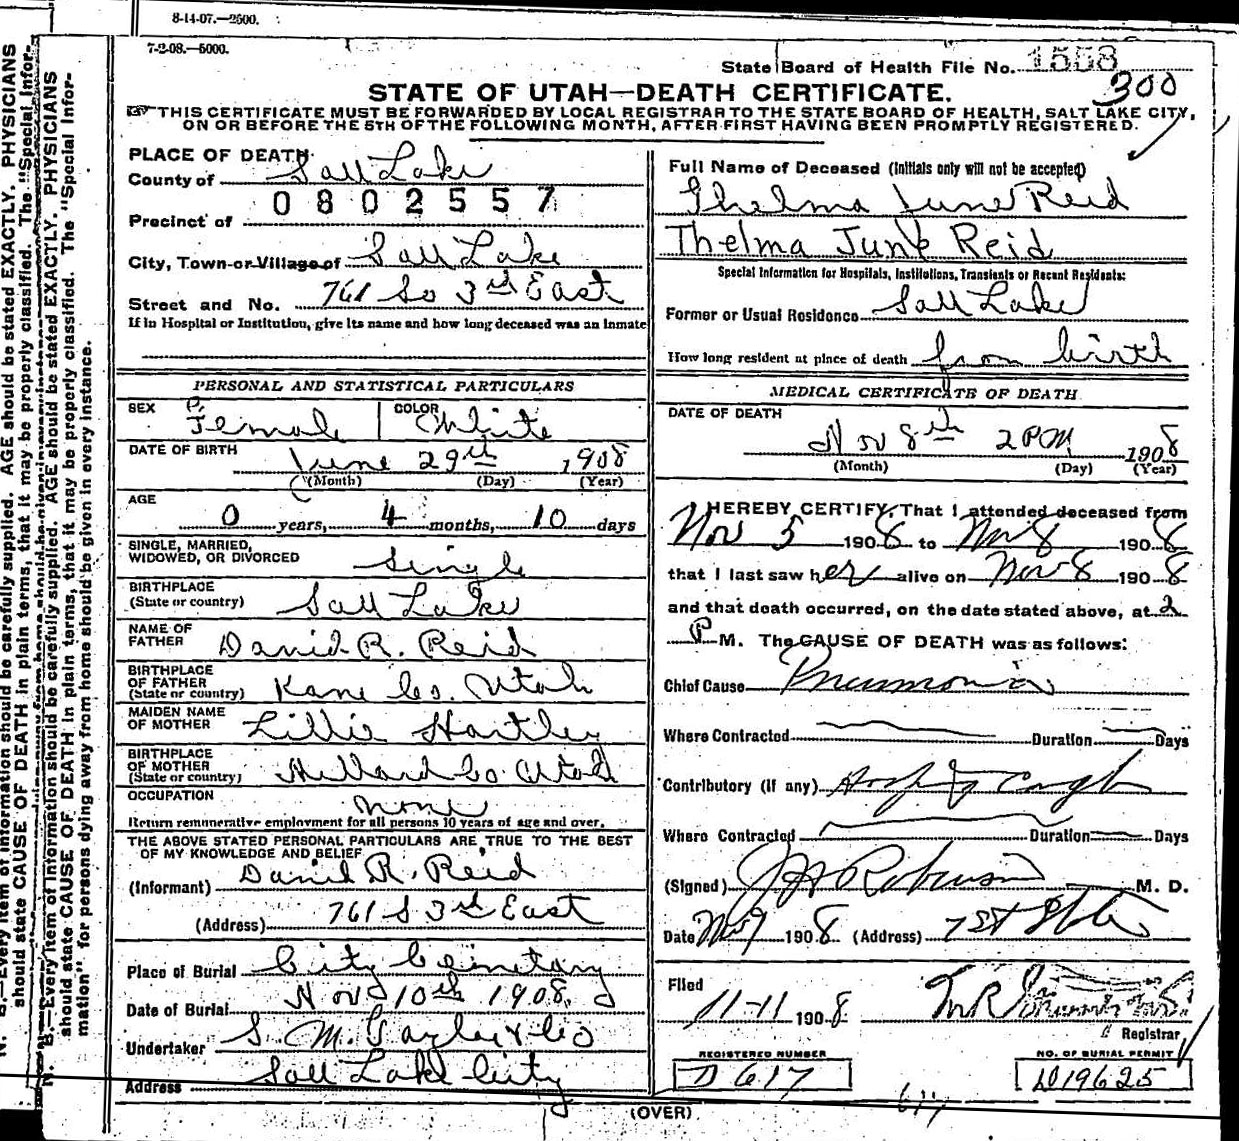 8-14-07.—2500.
7-2-08.—5000.
State Board of Health File No. 1558
300
STATE OF UTAH—DEATH CERTIFICATE.
THIS CERTIFICATE MUST BE FORWARDED BY LOCAL REGISTRAR TO THE STATE BOARD OF HEALTH, SALT LAKE CITY,
ON OR BEFORE THE 5TH OF THE FOLLOWING MONTH, AFTER FIRST HAVING BEEN PROMPTLY REGISTERED.
PLACE OF DEATH
County of Salt Lake
0802557
Precinct of
City, Town or Village of Salt Lake
Street and No. 761 So 3rd East
If in Hospital or Institution, give its name and how long deceased was an inmate
Full Name of Deceased (Initials only will not be accepted)
Thelma June Reid
Thelma June Reid
Special Information for Hospitals, Institutions, Transients or Recent Residents:
Former or Usual Residence Salt Lake
How long resident at place of death from birth
PERSONAL AND STATISTICAL PARTICULARS
SEX Female COLOR White
DATE OF BIRTH June 29th 1908
(Month) (Day) (Year)
AGE
0 years, 4 months, 10 days
SINGLE, MARRIED,
WIDOWED, OR DIVORCED Single
BIRTHPLACE
(State or country) Salt Lake
NAME OF
FATHER David R. Reid
BIRTHPLACE
OF FATHER
(State or country) Kane Co. Utah
MAIDEN NAME
OF MOTHER Lillie Hartley
BIRTHPLACE
OF MOTHER
(State or country) Millard Co Utah
OCCUPATION none
Return remunerative employment for all persons 10 years of age and over.
THE ABOVE STATED PERSONAL PARTICULARS ARE TRUE TO THE BEST
OF MY KNOWLEDGE AND BELIEF
(Informant) David R. Reid
(Address) 761 S 3rd East
Place of Burial City Cemetary
Date of Burial Nov 10th 1908
Undertaker S. M. Taylor & Co
Address Salt Lake City
MEDICAL CERTIFICATE OF DEATH
DATE OF DEATH
Nov 8th 2 PM 1908
(Month) (Day) (Year)
I HEREBY CERTIFY, That I attended deceased from
Nov 5 1908 to Nov 8 1908
that I last saw her alive on Nov 8 1908
and that death occurred, on the date stated above, at 2
P M. The CAUSE OF DEATH was as follows:
Chief Cause Pneumonia
Where Contracted Duration Days
Contributory (if any) Cough
Where Contracted Duration Days
(Signed) Robinson M. D.
Date Nov 9 1908 (Address)
Filed
11-11 1908
Registrar
REGISTERED NUMBER
D 617
NO. OF BURIAL PERMIT
D19625
617
(OVER)
N. B.—Every item of information should be carefully supplied. AGE should be stated EXACTLY. PHYSICIANS
should state CAUSE OF DEATH in plain terms, that it may be properly classified. The "Special Infor-
N. B.—Every item of information should be carefully supplied. AGE should be stated EXACTLY. PHYSICIANS
should state CAUSE OF DEATH in plain terms, that it may be properly classified. The "Special Infor-
mation" for persons dying away from home should be given in every instance.